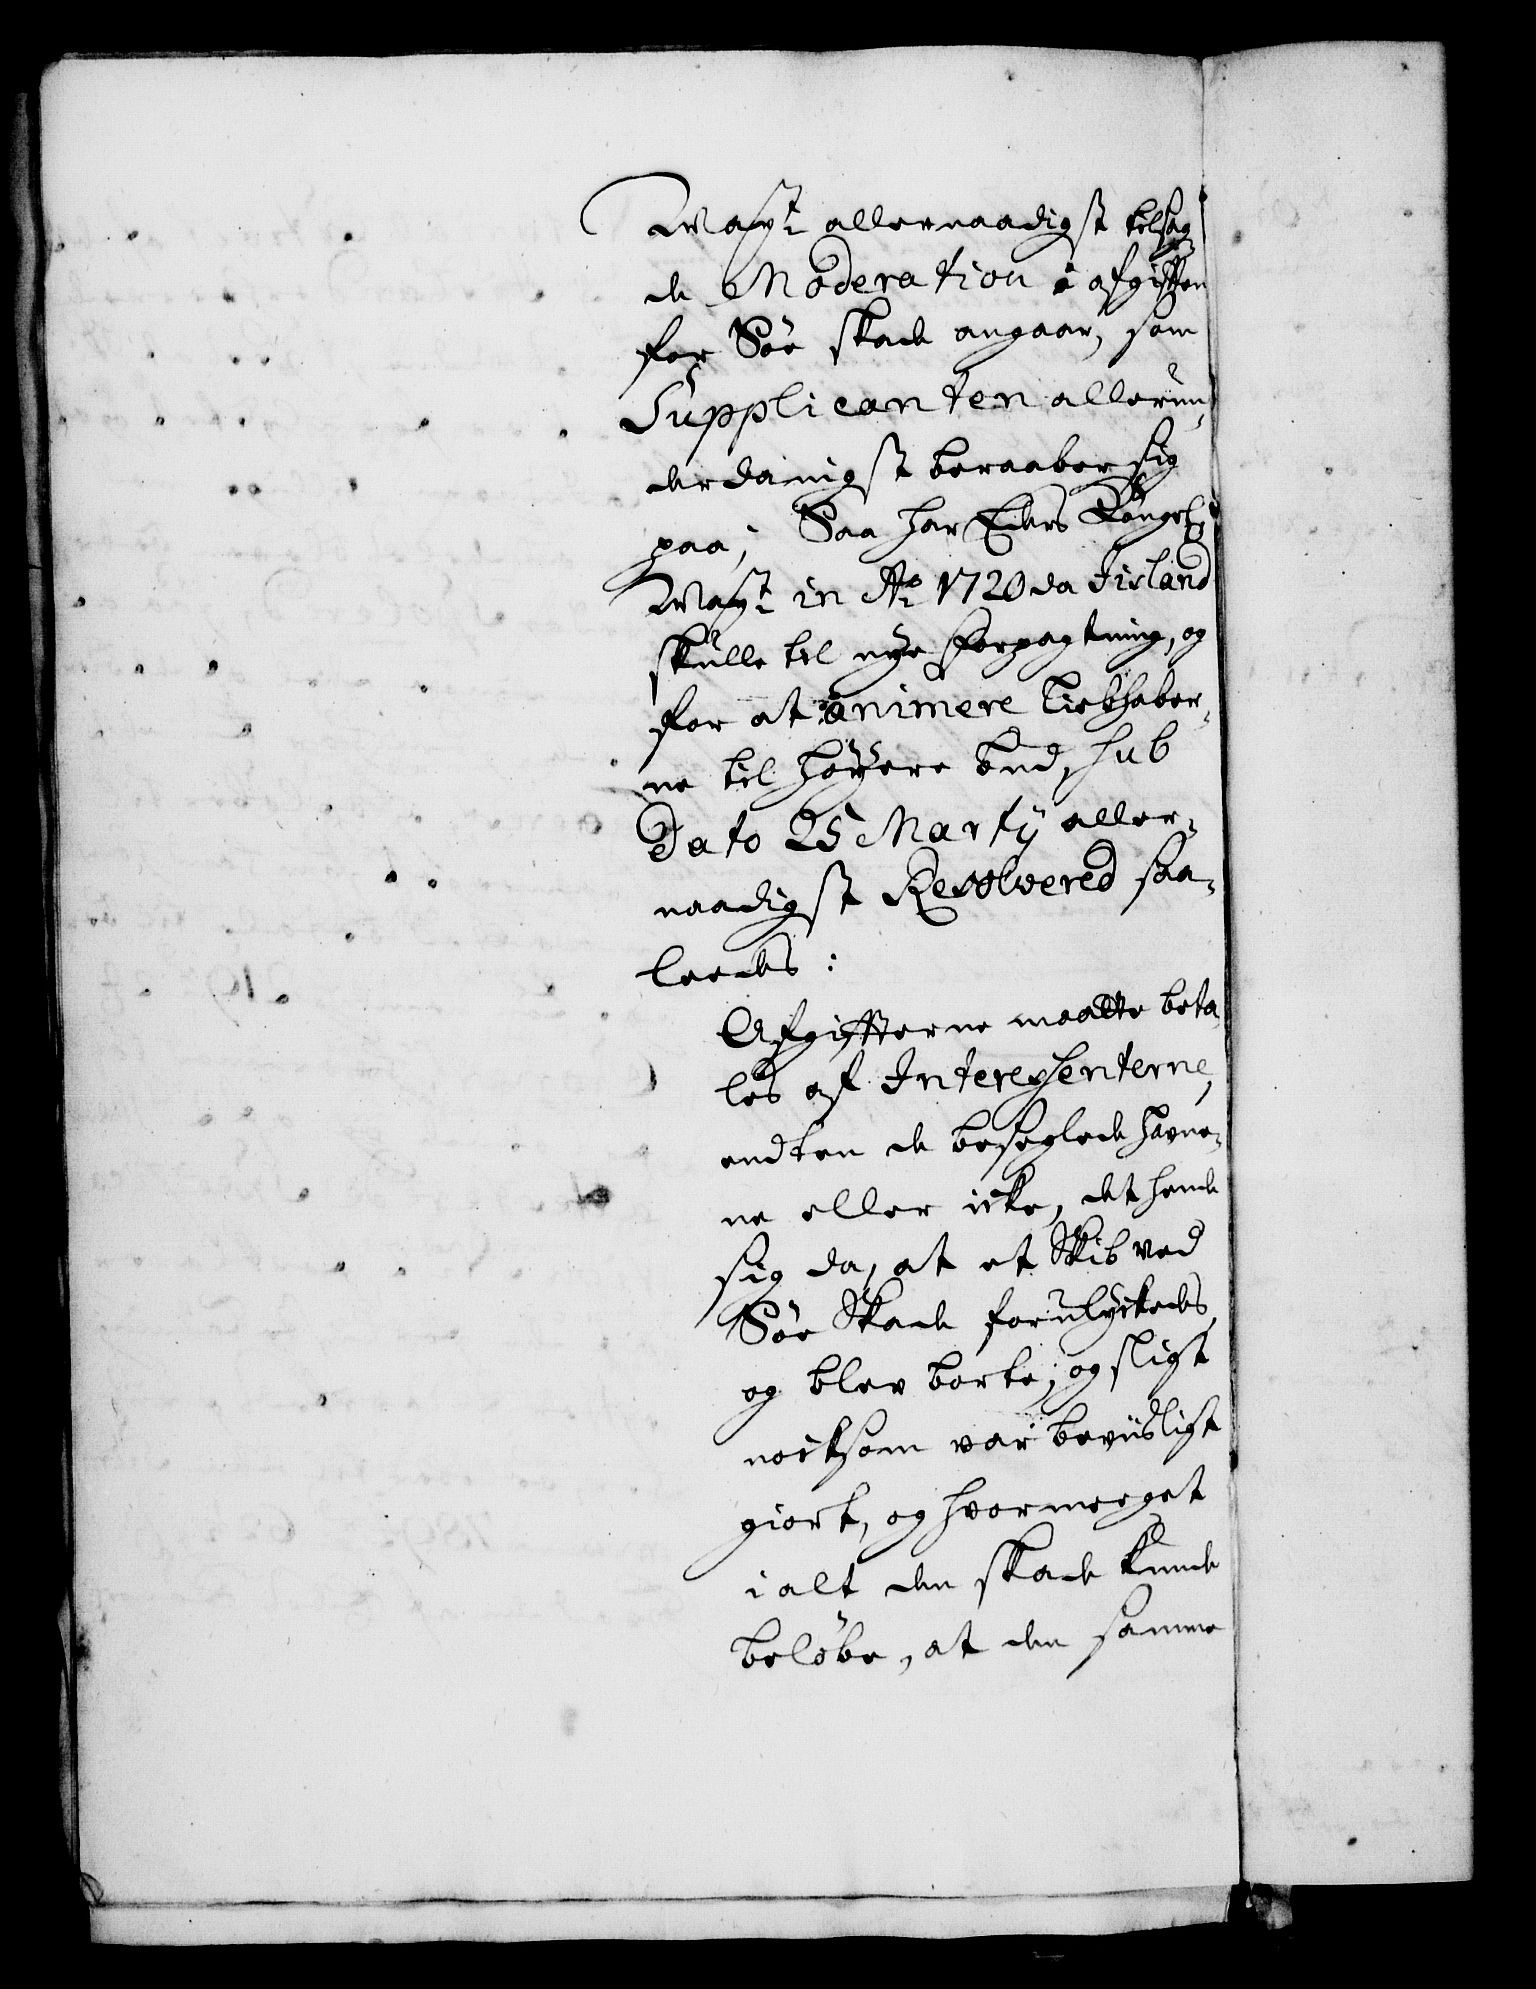 Mayt allernaadigst tilsag-
de Moderation i afgifften
for Söe skade angaar, som
Supplicanten allerun-
derdanigst beraaber sig
paa; Saa har Eders Kongel.
Mayt in Ao 1720 da Iisland
skulle til nye forpagtning, og
for at animere Liebhaber-
ne til höyere bud, sub
Dato 25 Martij aller-
naadigst Resolvered saa-
leedes:
Afgiffterne maatte beta-
les af Interessenterne,
endten de beseglede Havne-
ne eller icke, det hende
sig da, at et Skib ved
Söe Skade forulyckedes,
og blev borte; og sligt
nocksom var beviisligt
giort, og hvor meeget
i alt den skade kunde
belöbe, at den samme